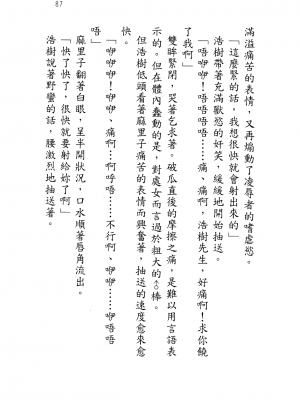 87
滿溢痛苦的表情，又再煽動了凌辱者的嗜虐慾。
「這麼緊的話，我想很快就會射出來的」
浩樹帶著充滿獸慾的奸笑，緩緩地開始抽送。
「唔咿咿！唔唔唔唔……痛、痛啊，浩樹先生，好痛啊！求你饒
了我啊」
雙眸緊閉，哭著乞求著。破瓜直後的摩擦之痛，是難以用言語表
示的。但在體內蠢動的是，對處女而言過於粗大的棒。
但浩樹低頭看著麻里子痛苦的表情而興奮著，抽送的速度愈來愈
快。
「咿咿咿！咿……痛啊…啊呼唔……不行啊、咿咿……咿唔唔
唔」
麻里子翻著白眼，呈半開狀況，口水順著唇角流出。
「快了快了，很快就要射給妳了啊」
浩樹說著野蠻的話，腰激烈地抽送著。